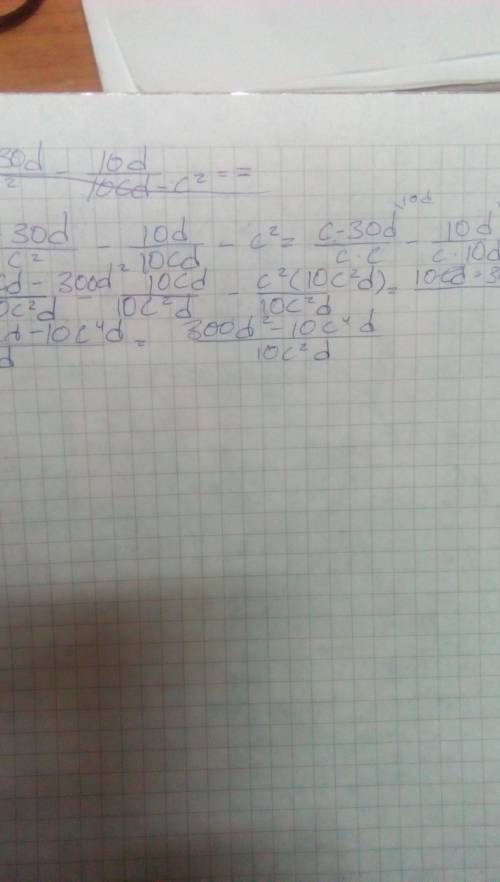 30d/² - 10d/10cd - c² ==
30d/c² - 10d/10cd - c² = c-30d/c·c \10d - 10d/c·10d
cd - 300d²/0c²d - 10cd/10c²d - c²(10c²d)/10c²d = 10cd - 3
cd - 10c⁴d/d = 300d² - 10c⁴d/10c²d